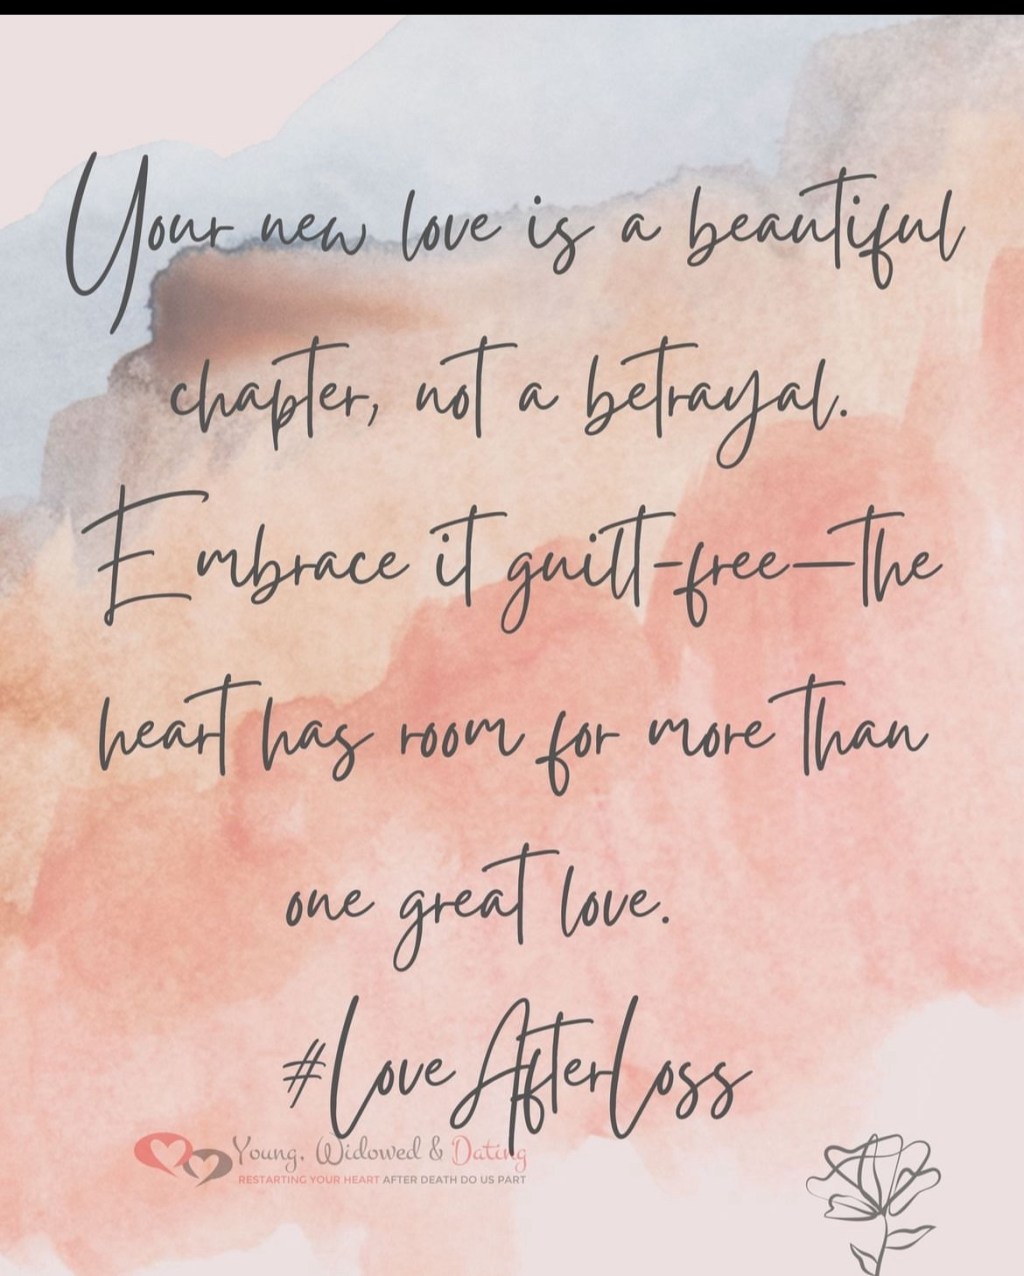 Your new love is a beautiful
chapter, not a betrayal.
Embrace it guilt-free—the
heart has room for more than
one great love.
#LoveAfterLoss
Young, Widowed & Dating
RESTARTING YOUR HEART AFTER DEATH DO US PART